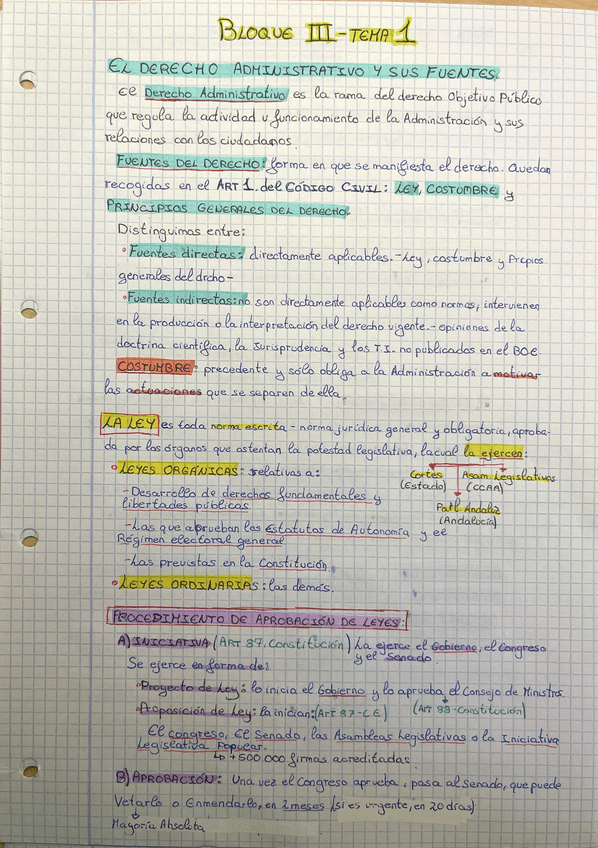 BLOQUE III - TEMA 1
EL DERECHO ADMINISTRATIVO Y SUS FUENTES.
El Derecho Administrativo es la rama del derecho Objetivo Público
que regula la actividad u funcionamiento de la Administración y sus
relaciones con los ciudadanos.
FUENTES DEL DERECHO: forma en que se manifiesta el derecho. Quedan
recogidas en el ART 1. del CÓDIGO CIVIL: LEY, COSTUMBRE y
PRINCIPIOS GENERALES DEL DERECHO.
Distinguimos entre:
• Fuentes directas: directamente aplicables. - Ley, costumbre y Prcpios
generales del drcho -
• Fuentes indirectas: no son directamente aplicables como normas, intervienen
en la producción o la interpretación del derecho vigente. - opiniones de la
doctrina científica, la Jurisprudencia y los T.I. no publicados en el BOE.
COSTUMBRE: precedente y sólo obliga a la Administración a motivar
las actuaciones que se separen de ella.
LA LEY es toda norma escrita - norma jurídica general y obligatoria, aproba-
da por los órganos que ostentan la potestad legislativa, la cual la ejercen:
• LEYES ORGÁNICAS: relativas a:
Cortes (Estado)
Asam. Legislativas (CCAA)
Parl. Andaluz (Andalucía)
- Desarrollo de derechos fundamentales y
libertades públicas
- Las que aprueban los Estatutos de Autonomía y el
Régimen electoral general
- Las previstas en la Constitución.
• LEYES ORDINARIAS: las demás.
PROCEDIMIENTO DE APROBACIÓN DE LEYES:
A) INICIATIVA (ART 87. Constitución) La ejerce el Gobierno, el Congreso
y el Senado.
Se ejerce en forma de:
• Proyecto de Ley: lo inicia el Gobierno y lo aprueba el Consejo de Ministros.
(Art 88 - Constitución)
• Proposición de Ley: la inician: (Art 87 - CE)
El congreso, el Senado, las Asambleas Legislativas o la Iniciativa
Legislativa Popular.
↳ +500.000 firmas acreditadas.
B) APROBACIÓN: Una vez el Congreso aprueba, pasa al Senado, que puede
Vetarlo o Enmendarlo, en 2 meses (si es urgente, en 20 días)
Mayoría Absoluta